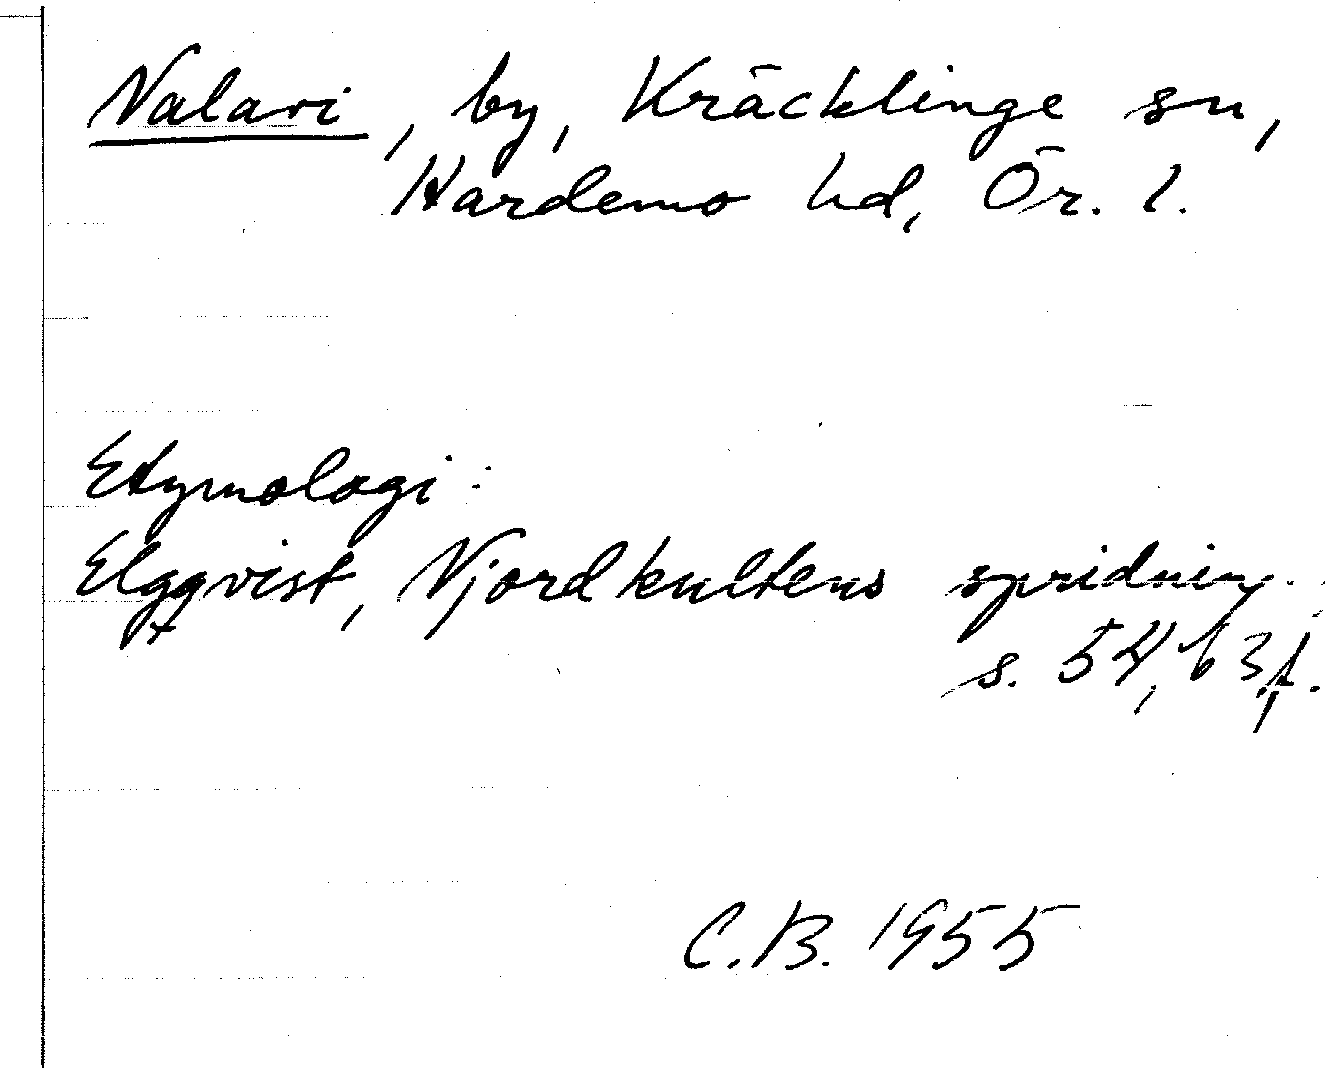 Nalavi, by, Kräcklinge sn,
Hardemo hd, Ör. l.
Etymologi:
Elgqvist, Njordkultens spridning
s. 54, 63f.
C.B. 1955